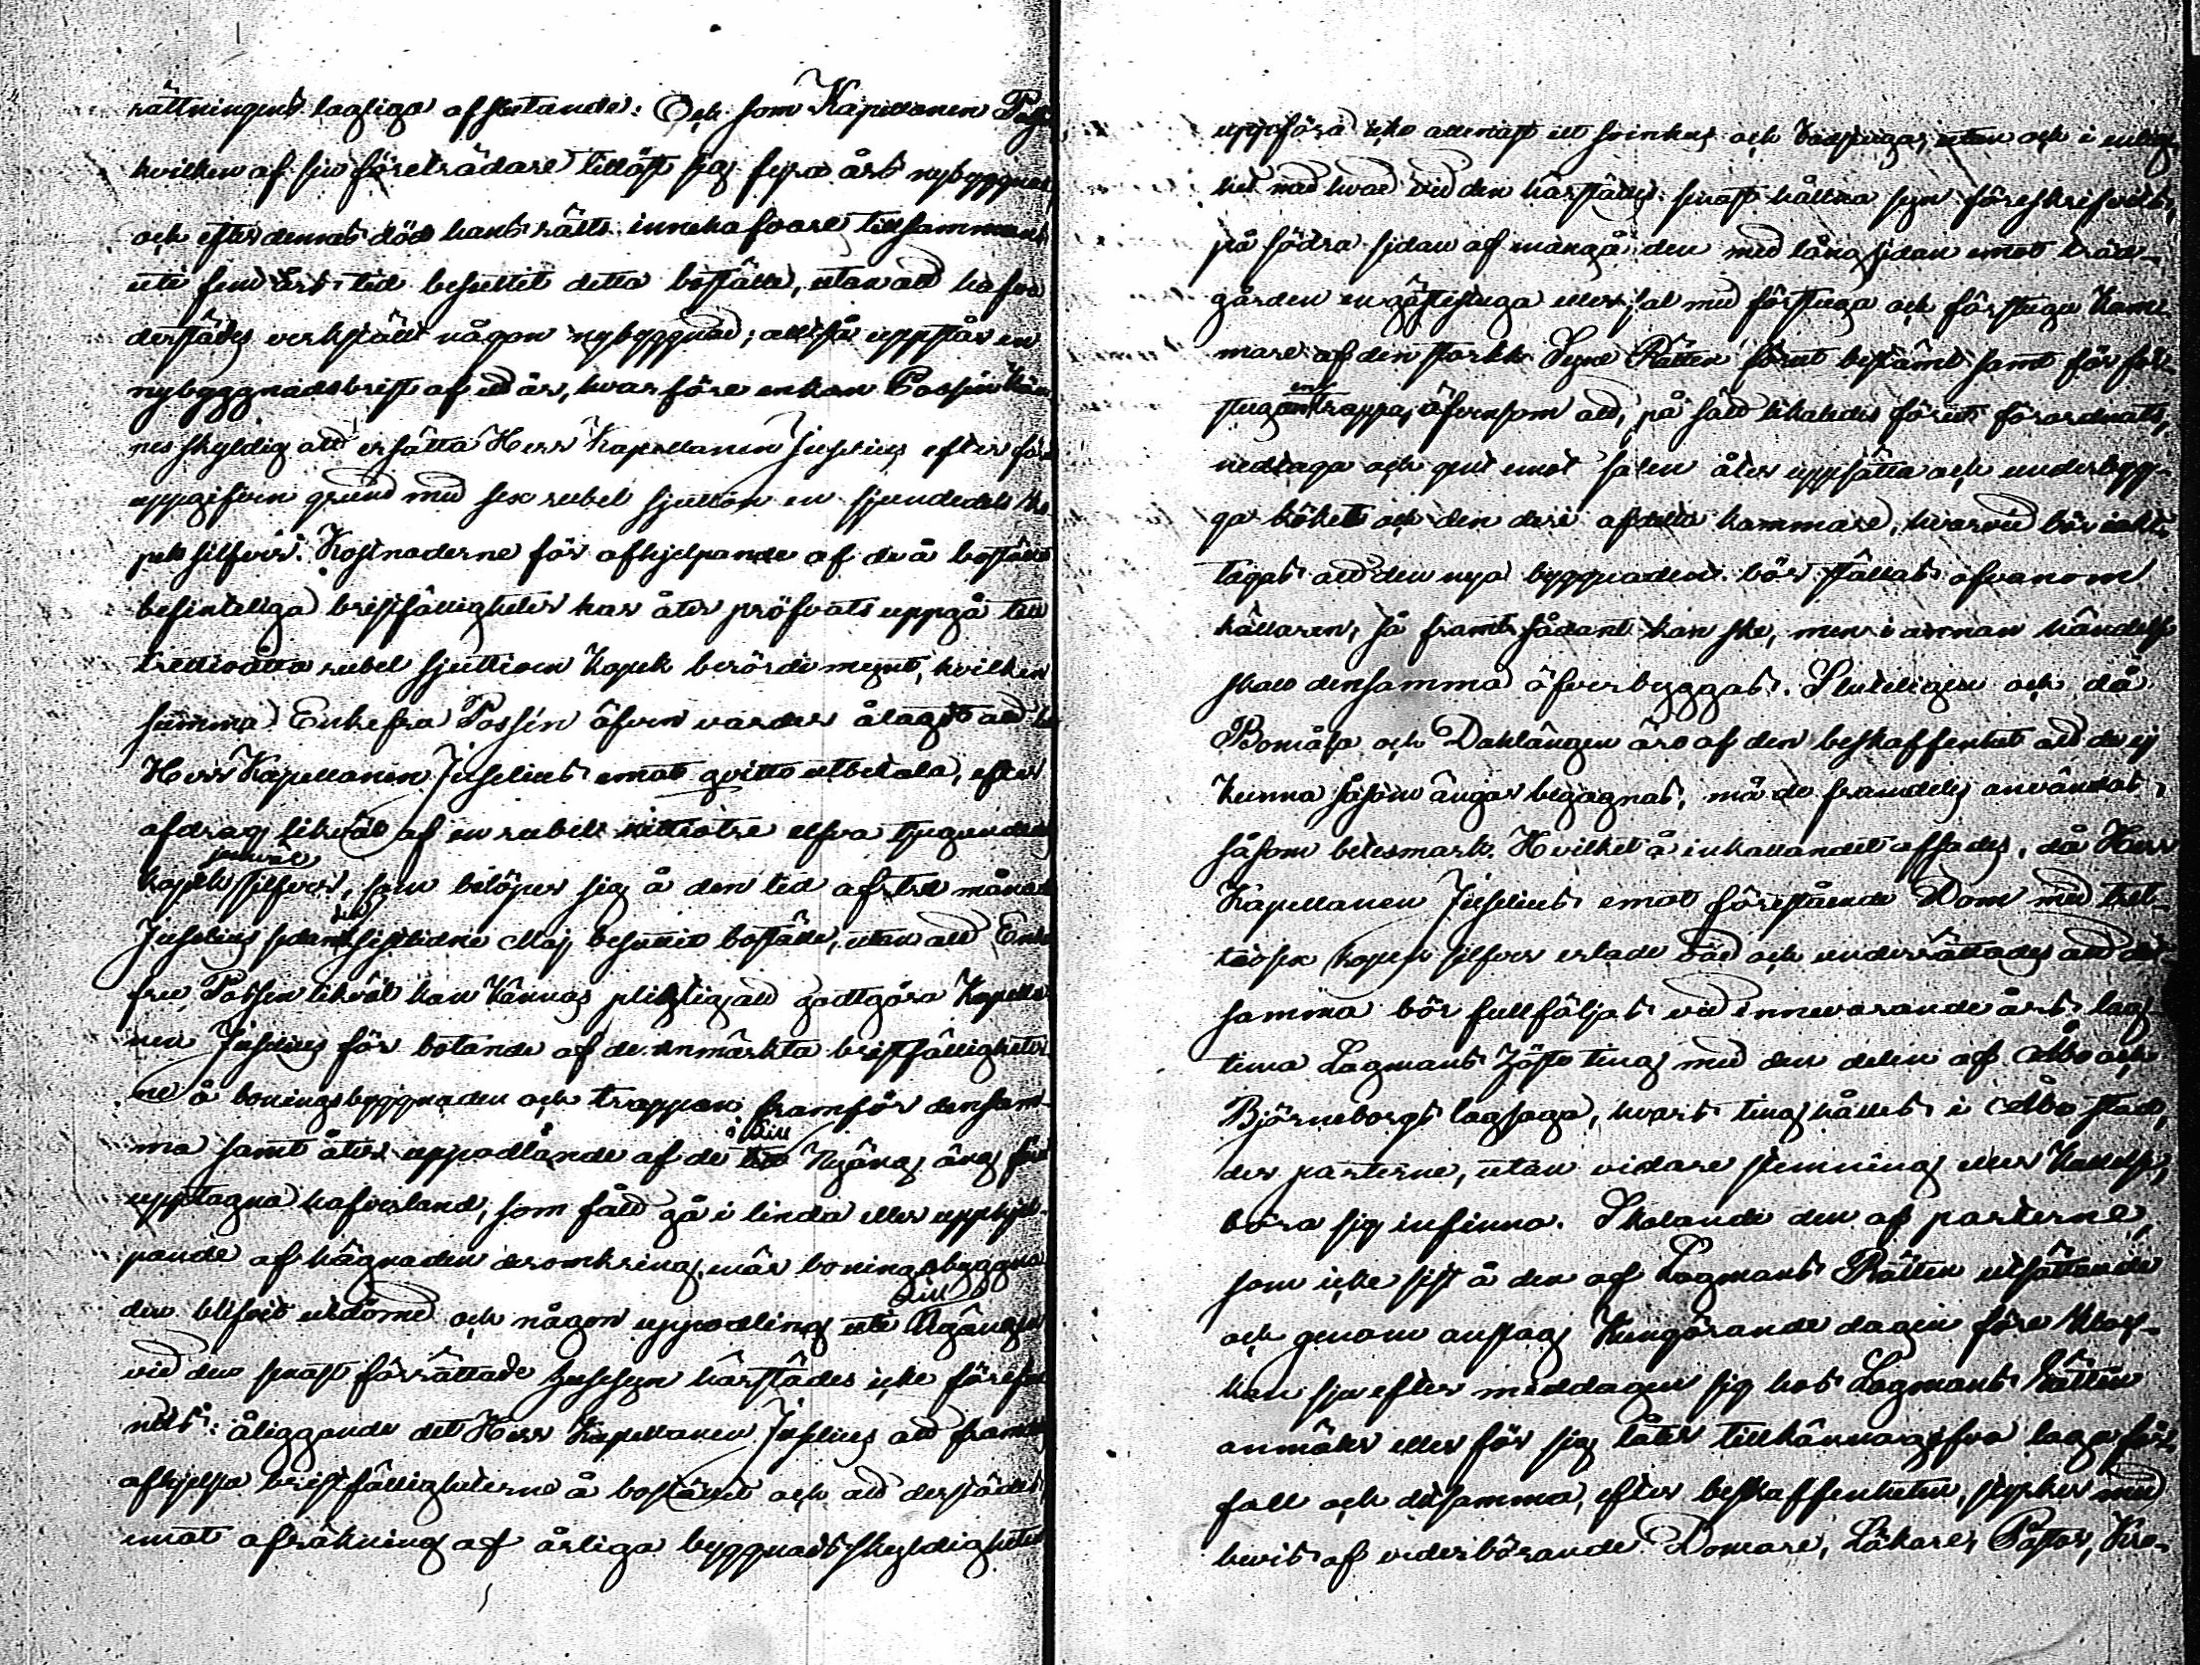 rättningens lagliga afslutande: Och som Kapellanen
hvilken af sin företrädare tillöst sig fyra års nybyggnad,
och efter dennes död hans rätts innehafvare tillsammans
uti fem års tid besuttit detta boställe, utan att hafva
derstädes verkställt någon nybyggnad; alltså uppstår en
nybyggnadsbrist af ett år, hvarföre enkan Possén kän-
nes skyldig att ersätta Herr Kapellanen Juselius efter förut
uppgifven grund med sex rubel sjutton en sjundedels ko
pek silfver. Kostnaderne för afhjelpande af de å bostället
befinteliga bristfälligheter har åter pröfvats uppgå till
trettioåtta rubel sjuttioen kopek berörde mynt, hvilken
summa Enkefru Possén äfven varder ålagd att till
Herr Kapellanen Juselius emot qvitto utbetala, efter
afdrag likväl af en rubel nittiotre elfva tjugondedels
kopek silfver, som belöper sig å den tid af tre månader
Juselius sedan sistlidne Maj besuttit bostället, utan att Enke
fru Possén likväl kan kännas pligtig att godtgöra Kapella-
nen Juselius för botande af de anmärkta bristfälligheter
ne å boningsbyggnaden och trappan framför densam-
ma samt åter uppodlande af de å Lill Nyäng äng förut
upptagna hafverland, som fått gå i linda eller upphjel-
pande af hägnaden deromkring, när boningsbyggna
den blifvit utdömd och någon uppodling uti Lill Nyängen
vid den senast förrättade husesyn härstädes icke förefun
nits: åliggande det Herr Kapellanen Juselius att framdeles
afhjelpa bristfälligheterne å bostället och att derstädes,
emot afräkning af årliga byggnadsskyldigheten
uppföra icke allenast ett svinhus och badstuga, utan och i enlig-
het med hvad vid den härstädes senast hållna syn föreskrifvits,
på södra sidan af mangården med långsidan emot träd-
gården en gästestuga eller sal med förstuga och förstugu kam-
mare af den storlek Syne Rätten förut bestämt samt för för-
stugan en trappa, äfvensom att, på sätt likaledes förut förordnats,
nedtaga och gent emot salen åter uppsätta och underbygg-
ga köket och den deri afdelta kammare, hvarvid bör iakt-
tagas att den nya byggnaden bör ställas ofvanom
källaren, så framt sådant kan ske, men i annan händelse
skall densamma öfverbyggas. Sluteligen och då
Bomåsa och Dahlängen äro af den beskaffenhet att de ej
kunna såsom ängar begagnas, må de framdeles användas
såsom betesmark. Hvilket å inkallandet afsades, då Herr
Kapellanen Juselius emot förestående Dom med tret-
tiosex kopek silfver erlade vad och underrättades att det
samma bör fullföljas vid innevarande års lag-
tima Lagmans Höste ting med den delen af Åbo och
Björneborgs lagsaga, hvars ting hålles i Åbo stad,
der parterne, utan vidare stemning eller kallelse,
böra sig infinna. Skolande den af parterne,
som icke sist å den af Lagmans Rätten utsättande
och genom anslag kungörande dagen före kloc-
kan sju efter middagen sig hos Lagmans Rätten
anmäler eller för sig låter tillkännagifva laga för-
fall och detsamma, efter beskaffenheten, styrker med
bevis af vederbörande Domare, Läkare, Pastor, Kro-